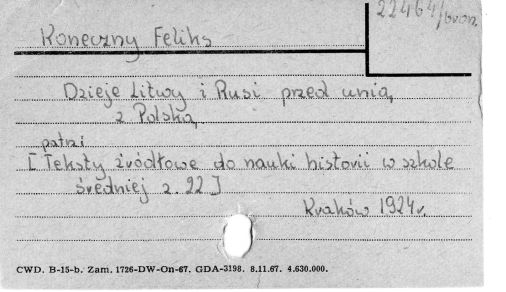 22464/
Koneczny Feliks
Dzieje Litwy i Rusi przed unią
z Polską
patrz
[Teksty źródłowe do nauki historii w szkole
średniej z. 22]
Kraków 1924r.
CWD. B-15-b. Zam. 1726-DW-On-67. GDA-3198. 8.11.67. 4.630.000.